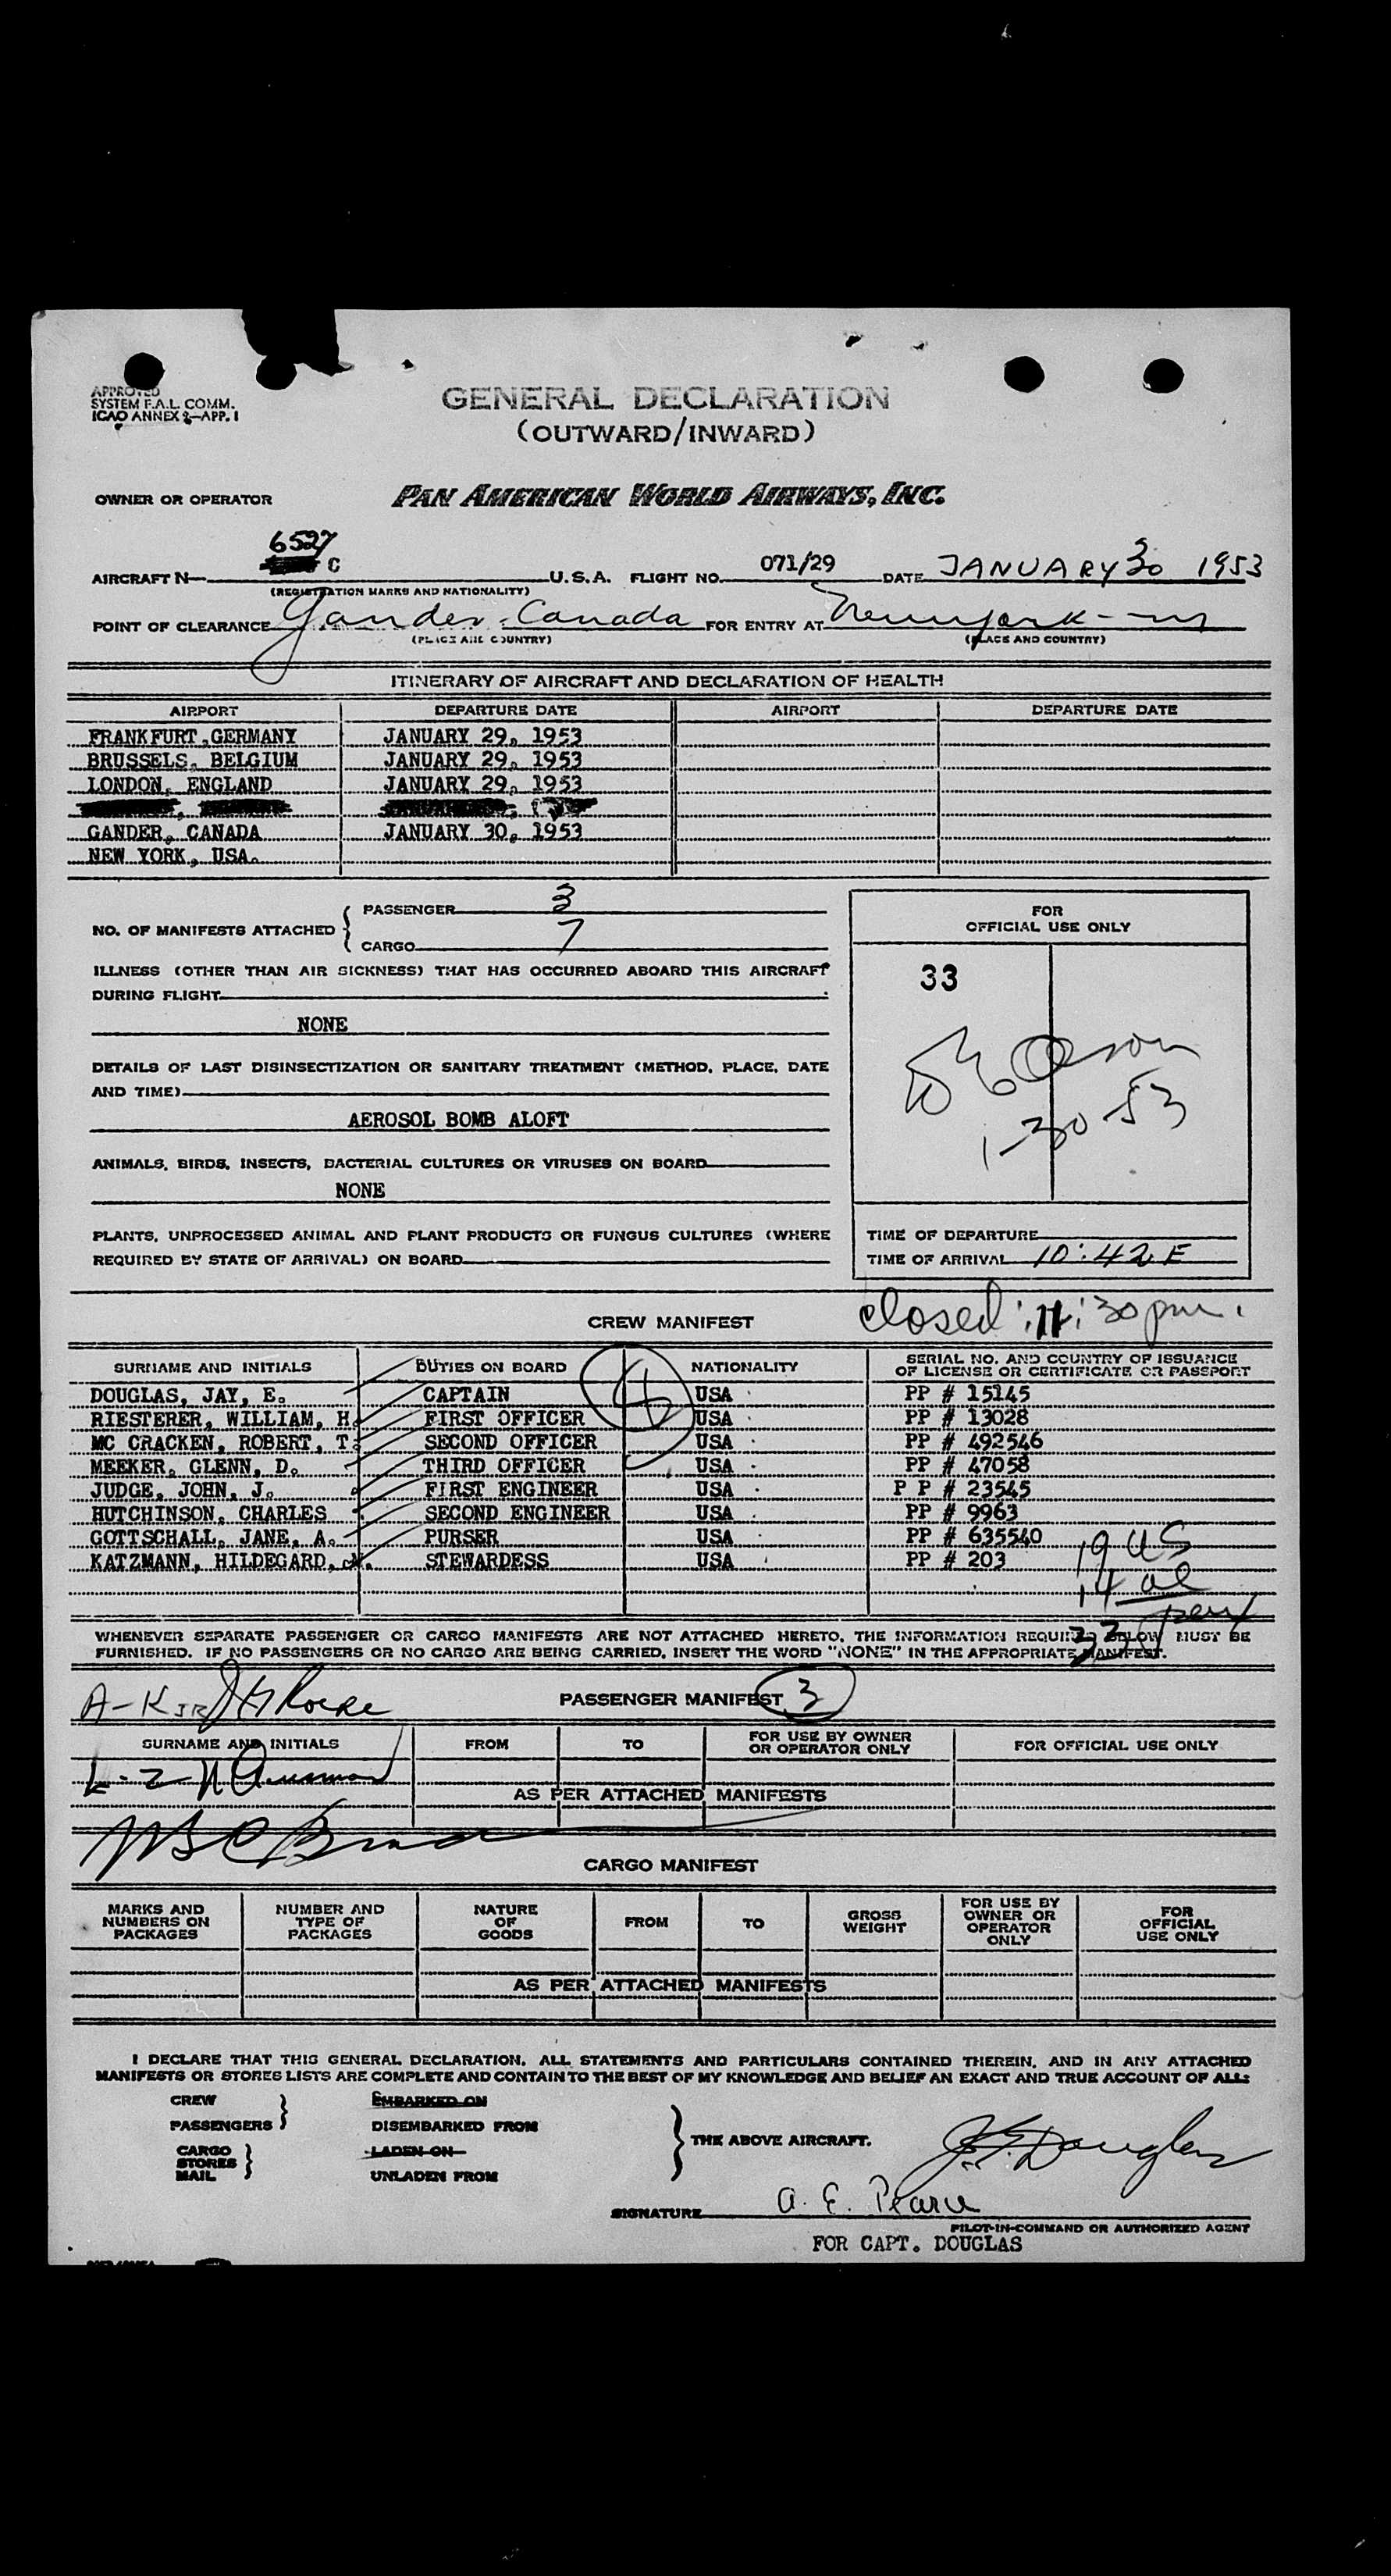 APPROVED
SYSTEM F.A.L. COMM.
ICAO ANNEX 9—APP. I
GENERAL DECLARATION
(OUTWARD/INWARD)
OWNER OR OPERATOR PAN AMERICAN WORLD AIRWAYS, INC.
6527
AIRCRAFT N— C U.S.A. FLIGHT NO. 071/29 DATE JANUARY 30 1953
(REGISTRATION MARKS AND NATIONALITY)
POINT OF CLEARANCE Gander, Canada FOR ENTRY AT New York
(PLACE AND COUNTRY) (PLACE AND COUNTRY)
ITINERARY OF AIRCRAFT AND DECLARATION OF HEALTH
AIRPORT DEPARTURE DATE AIRPORT DEPARTURE DATE
FRANKFURT, GERMANY JANUARY 29, 1953
BRUSSELS, BELGIUM JANUARY 29, 1953
LONDON, ENGLAND JANUARY 29, 1953
GANDER, CANADA JANUARY 30, 1953
NEW YORK, USA.
NO. OF MANIFESTS ATTACHED { PASSENGER 3
CARGO 7
FOR
OFFICIAL USE ONLY
33
1-30-53
ILLNESS (OTHER THAN AIR SICKNESS) THAT HAS OCCURRED ABOARD THIS AIRCRAFT
DURING FLIGHT
NONE
DETAILS OF LAST DISINSECTIZATION OR SANITARY TREATMENT (METHOD, PLACE, DATE
AND TIME)
AEROSOL BOMB ALOFT
ANIMALS, BIRDS, INSECTS, BACTERIAL CULTURES OR VIRUSES ON BOARD
NONE
PLANTS, UNPROCESSED ANIMAL AND PLANT PRODUCTS OR FUNGUS CULTURES (WHERE
REQUIRED BY STATE OF ARRIVAL) ON BOARD
TIME OF DEPARTURE
TIME OF ARRIVAL 10:42 E
closed 11:30 pm.
CREW MANIFEST
SURNAME AND INITIALS DUTIES ON BOARD NATIONALITY SERIAL NO. AND COUNTRY OF ISSUANCE
OF LICENSE OR CERTIFICATE OR PASSPORT
DOUGLAS, JAY, E. CAPTAIN USA PP # 15145
RIESTERER, WILLIAM, H. FIRST OFFICER USA PP # 13028
MC CRACKEN, ROBERT, T. SECOND OFFICER USA PP # 492546
MEEKER, GLENN, D. THIRD OFFICER USA PP # 47058
JUDGE, JOHN, J. FIRST ENGINEER USA P P # 23545
HUTCHINSON, CHARLES SECOND ENGINEER USA PP # 9963
GOTTSCHALL, JANE, A. PURSER USA PP # 635540
KATZMANN, HILDEGARD, STEWARDESS USA PP # 203
19 US
14 al
33
WHENEVER SEPARATE PASSENGER OR CARGO MANIFESTS ARE NOT ATTACHED HERETO, THE INFORMATION REQUIRED BELOW MUST BE
FURNISHED. IF NO PASSENGERS OR NO CARGO ARE BEING CARRIED, INSERT THE WORD "NONE" IN THE APPROPRIATE MANIFEST.
A-K
PASSENGER MANIFEST 3
SURNAME AND INITIALS FROM TO FOR USE BY OWNER
OR OPERATOR ONLY FOR OFFICIAL USE ONLY
L-Z
AS PER ATTACHED MANIFESTS
CARGO MANIFEST
MARKS AND
NUMBERS ON
PACKAGES NUMBER AND
TYPE OF
PACKAGES NATURE
OF
GOODS FROM TO GROSS
WEIGHT FOR USE BY
OWNER OR
OPERATOR
ONLY FOR
OFFICIAL
USE ONLY
AS PER ATTACHED MANIFESTS
I DECLARE THAT THIS GENERAL DECLARATION, ALL STATEMENTS AND PARTICULARS CONTAINED THEREIN, AND IN ANY ATTACHED
MANIFESTS OR STORES LISTS ARE COMPLETE AND CONTAIN TO THE BEST OF MY KNOWLEDGE AND BELIEF AN EXACT AND TRUE ACCOUNT OF ALL:
CREW EMBARKED ON
PASSENGERS DISEMBARKED FROM
THE ABOVE AIRCRAFT.
CARGO LADEN ON
STORES
MAIL UNLADEN FROM
J. E. Douglas
SIGNATURE A. E. Pearce
PILOT-IN-COMMAND OR AUTHORIZED AGENT
FOR CAPT. DOUGLAS